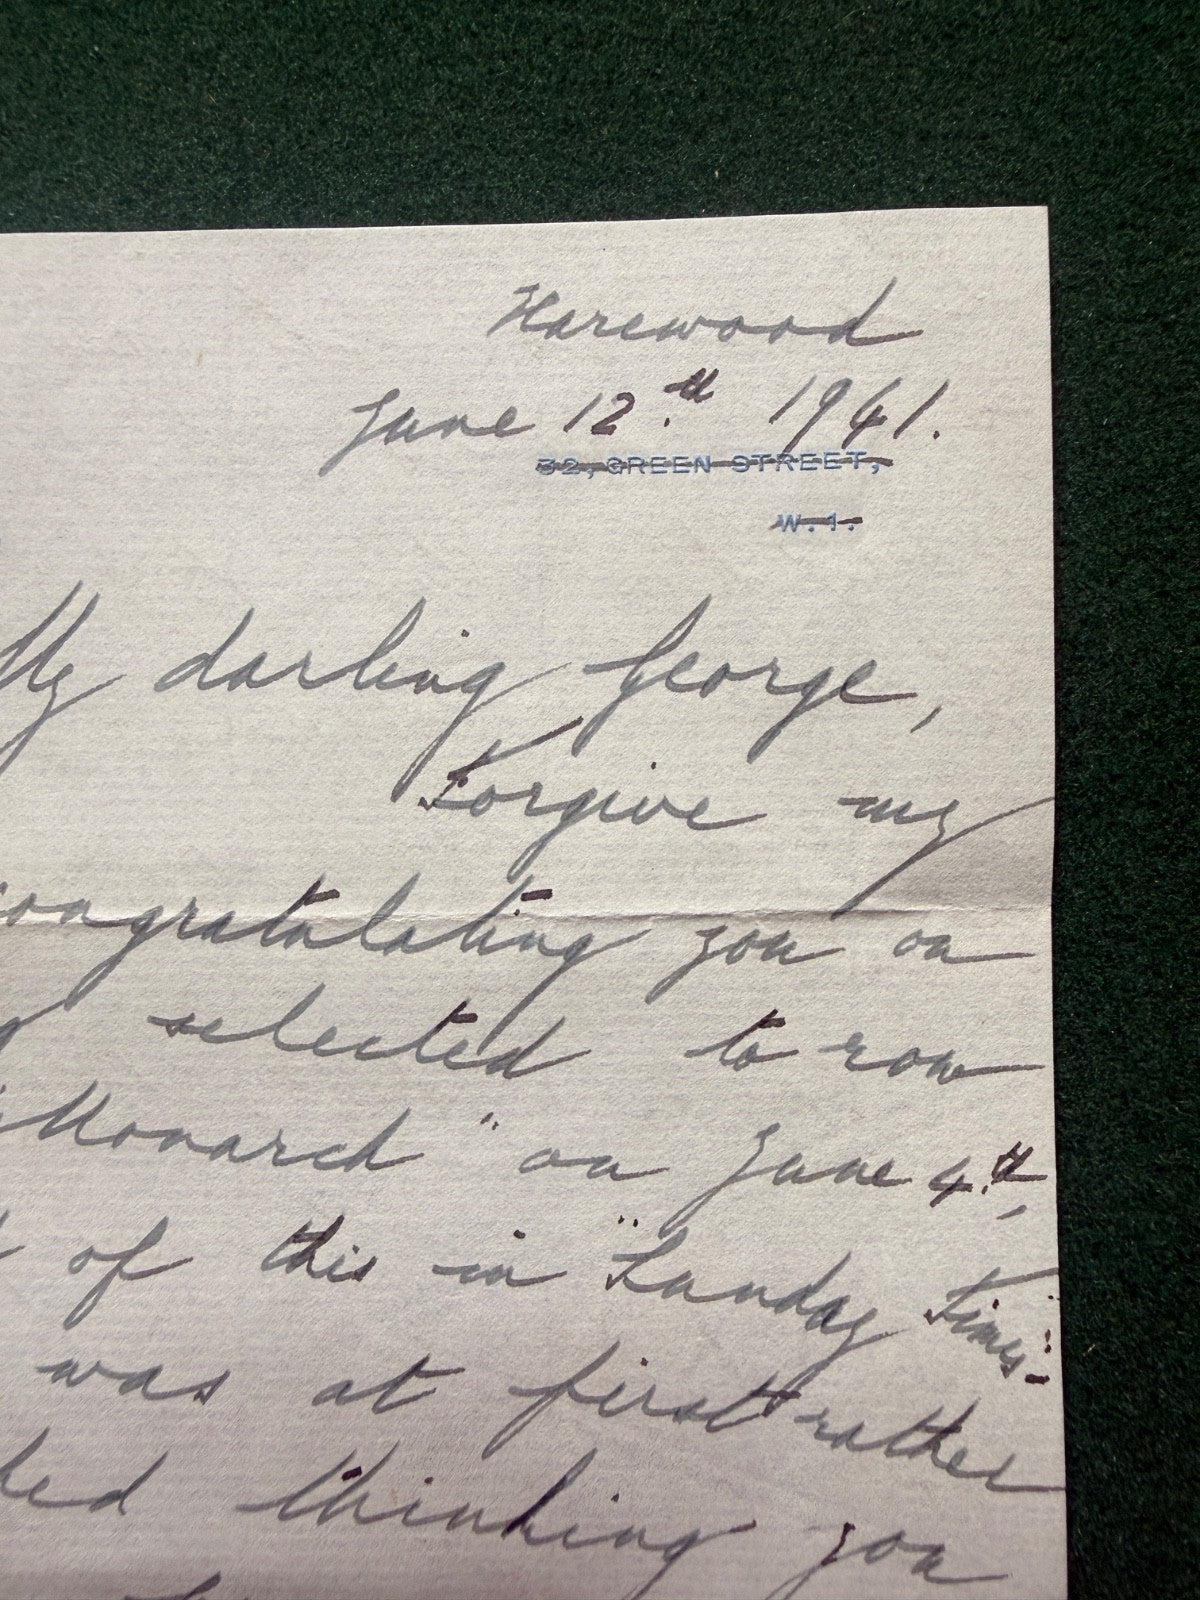 Harewood
June 12.th 1941.
32, GREEN STREET,
W.1.
My darling George,
Forgive my
congratulating you on
selected to row
"Monarch" on June 4th,
of this in "Sunday Times"-
was at first rather
thinking you